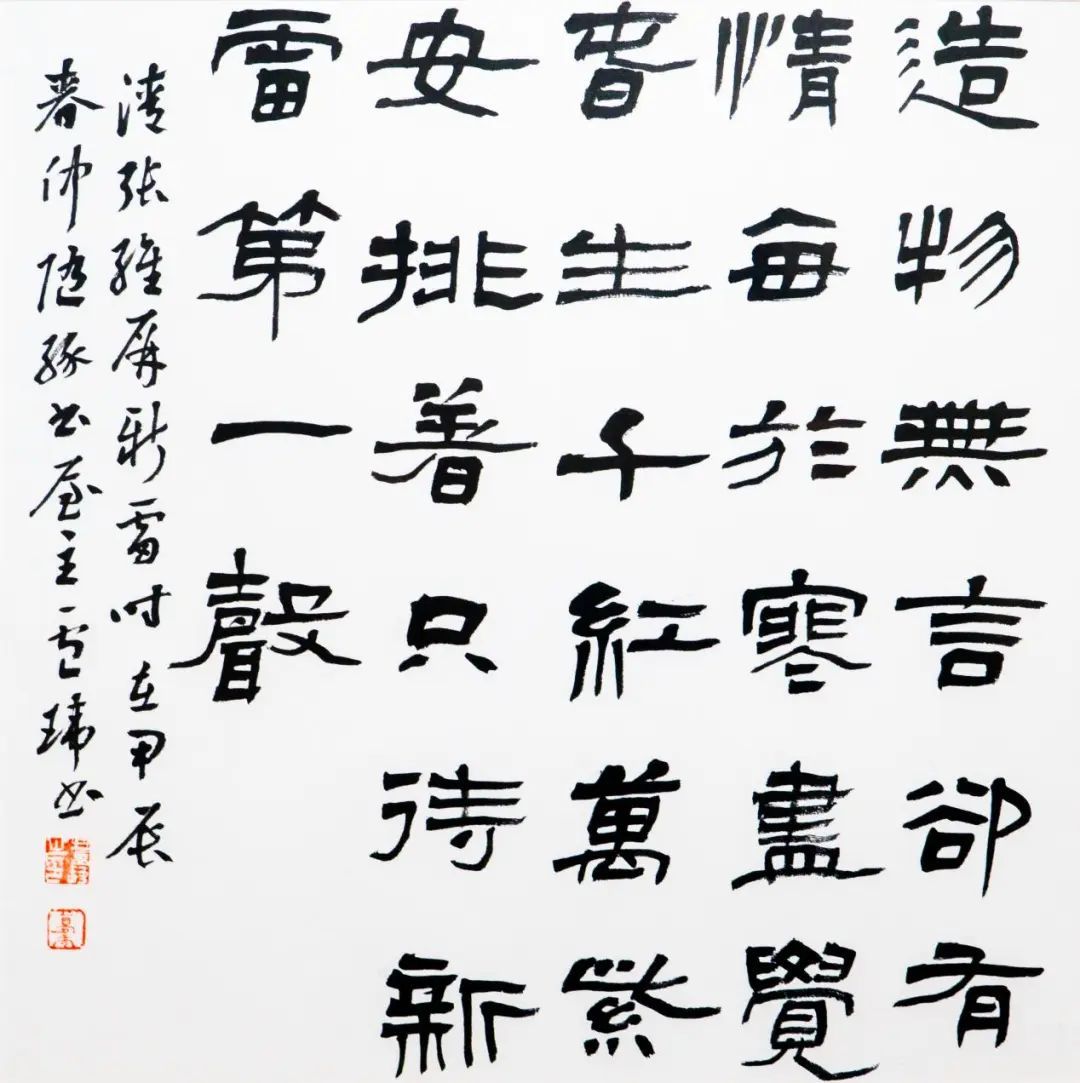 造物無言卻有
情每於寒盡覺
春生千紅萬紫
安排著只待新
雷第一聲
清張維屏新雷时在甲辰
春仲隨緣书屋主瑋书